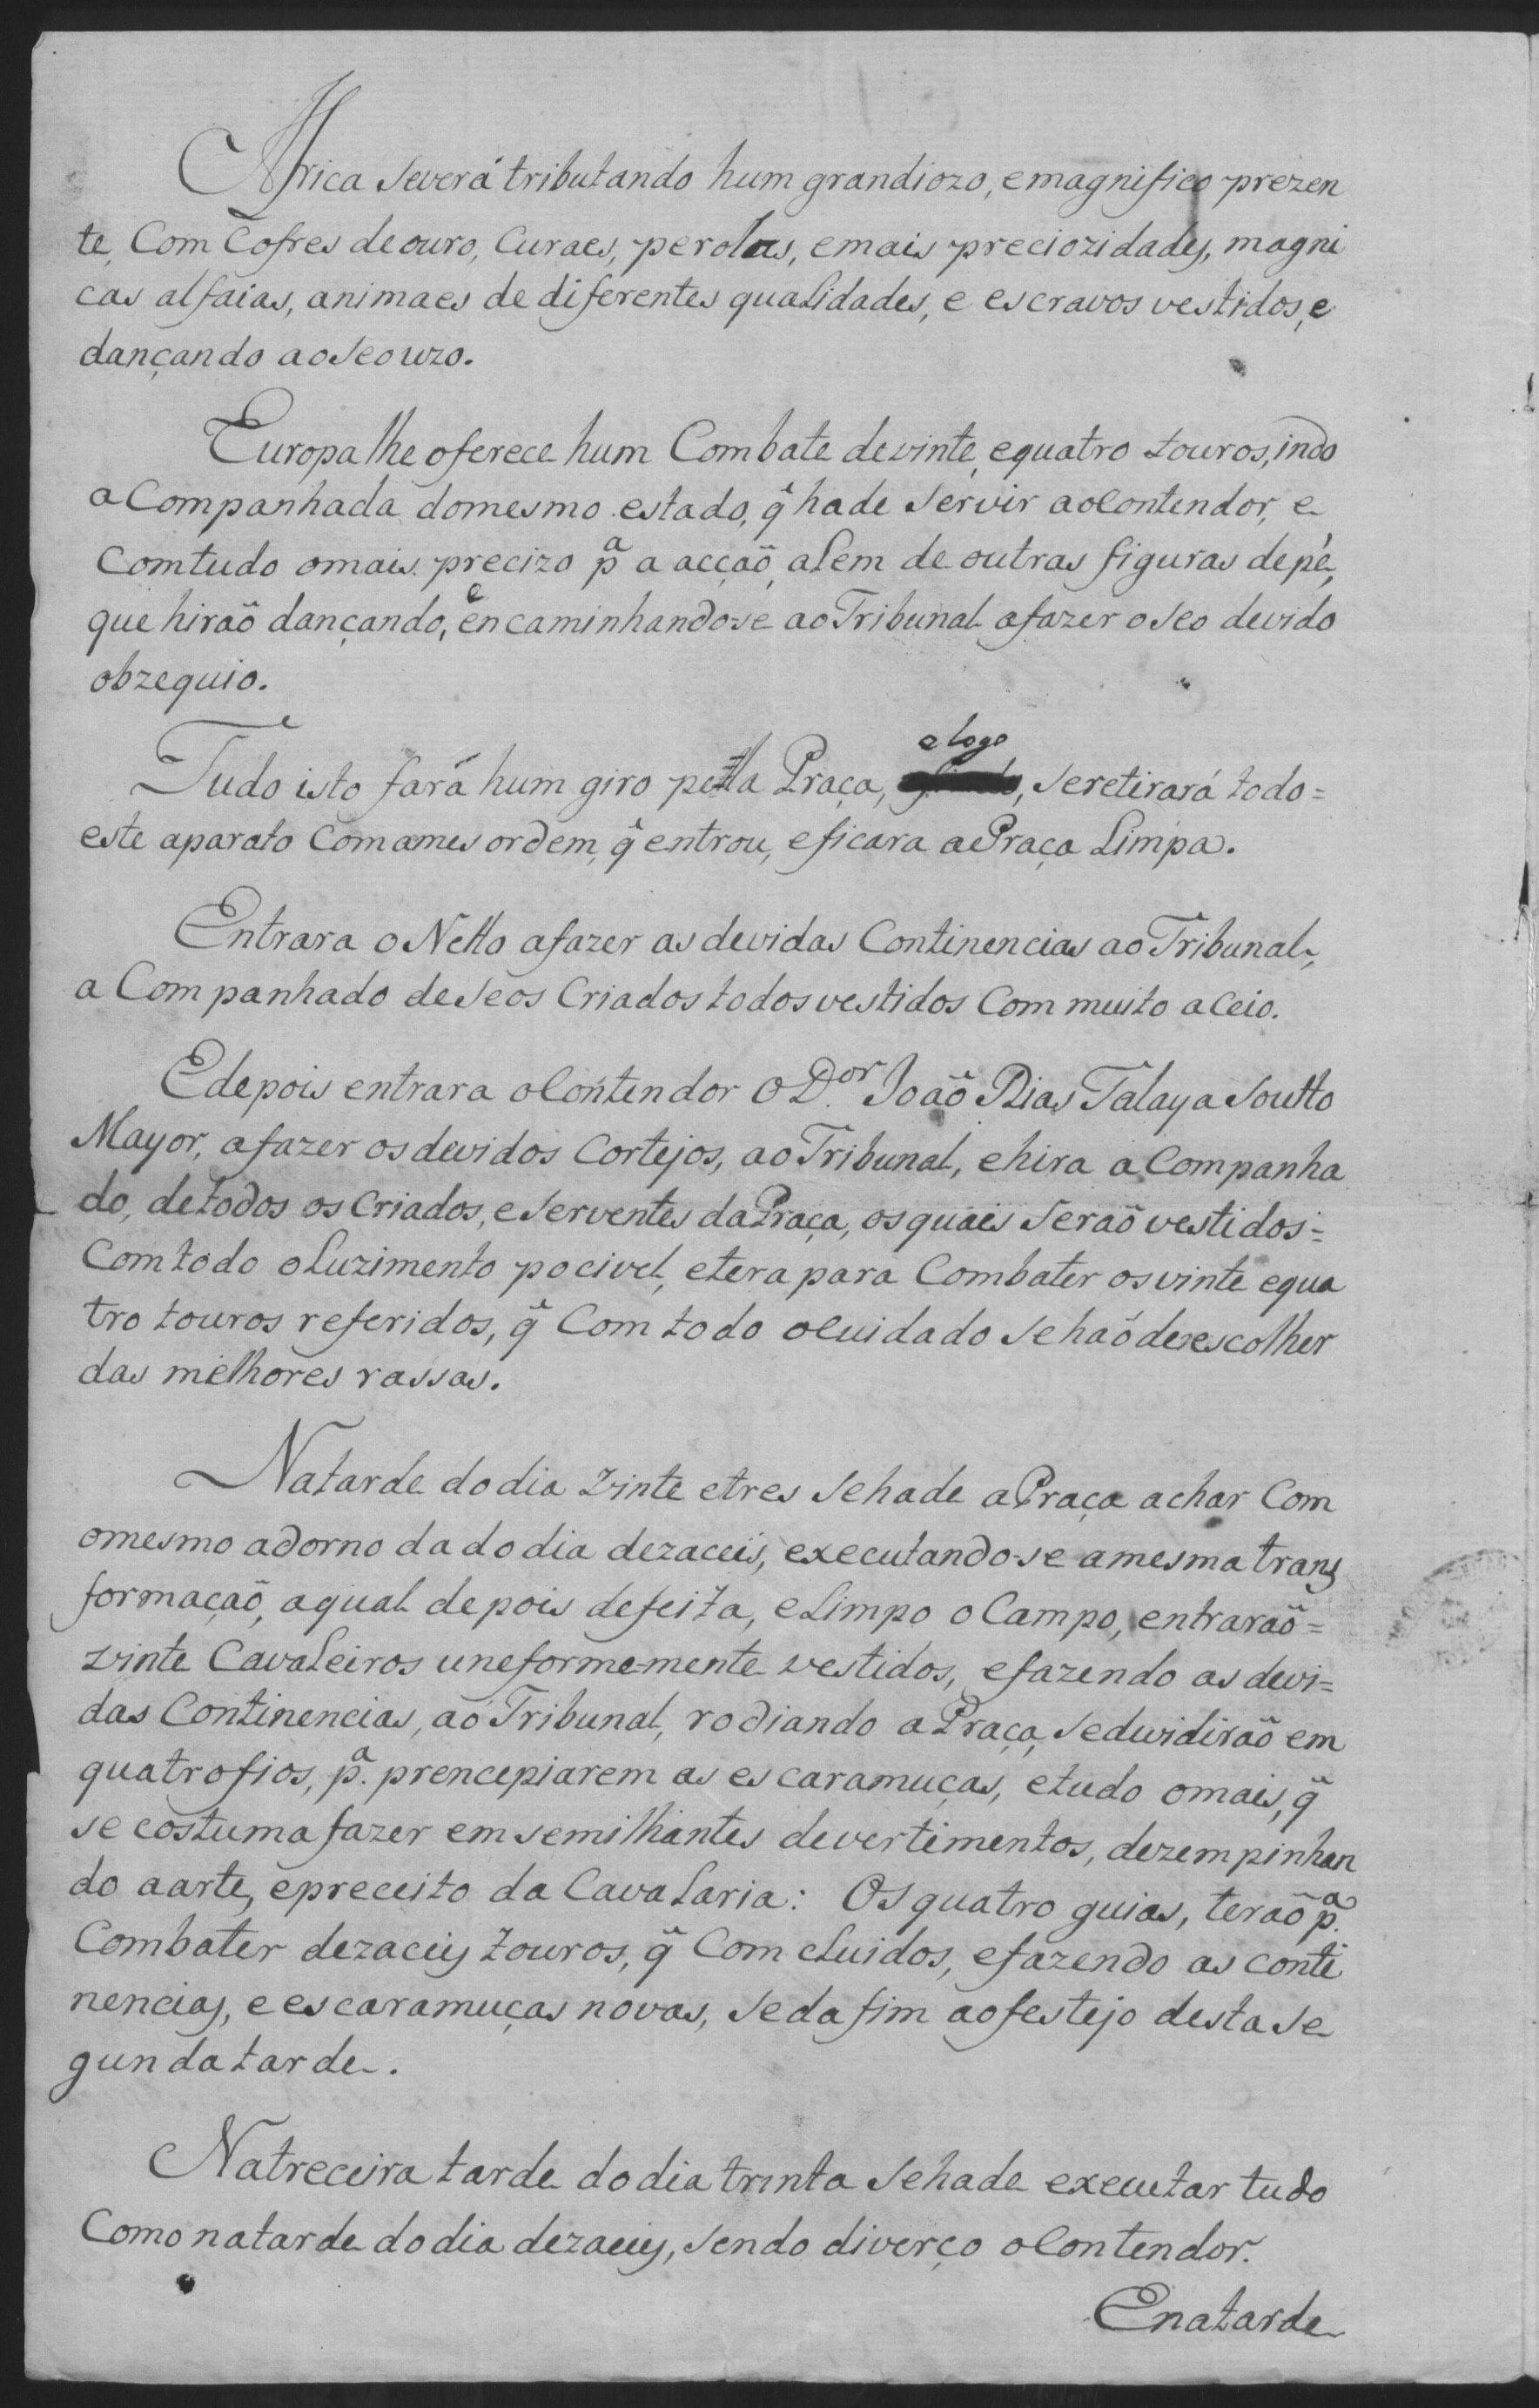 Africa severá tributando hum grandiozo, e magnifico prezen
te, Com Cofres de ouro, Curaes, perolas, emais preciozidades, magni
cas alfaias, animaes de diferentes qualidades, e escravos vestidos, e
dançando aoseouzo.
Europa lhe oferece hum Combate devinte, equatro touros, indo
a Companhada domesmo estado, q̃ hade servir aoContendor, e
Comtudo omais precizo pª a acçaõ, alem de outras figuras depé,
que hiraõ dançando, e encaminhandose ao Tribunal afazer oseo devido
obzequio.
Tudo isto fará hum giro pella Praça, elogo, seretirará todo=
este aparato Comames ordem, q̃ entrou, eficara aPraça Limpa.
Entrara o Netto afazer as devidas Continencias ao Tribunal,
a Companhado deseos Criados todos vestidos Com muito aCeio.
Edepois entrara oContendor O D.or Joaõ Dias Talaya Soutto
Mayor, afazer osdevidos Cortejos, ao Tribunal, ehira aCompanha
do, detodos os Criados, e serventes daPraça, osquáes seraõ vestidos=
Comtodo oLuzimento pocivel, etera para Combater osvinte equa
tro touros referidos, q̃ Com todo oCuidado sehaõdeescolher
das melhores rassas.
Natarde dodia vinte etres sehade aPraça achar Com
omesmo adorno dadodia dezaceis, executando-se amesmatrans
formaçaõ, aqual depois defeita, eLimpo oCampo, entraraõ=
vinte Cavaleiros uneforme-mente vestidos, efazendo as devi=
das Continencias, ao Tribunal, rodiando aPraça, sedividiraõ em
quatrofios, pª. prencepiarem as escaramuças, etudo omais, q̃
se costuma fazer em semilhantes devertimentos, dezempinhan
do aarte, epreceito da Cavalaria: Os quatro guias, teraõ pª.
Combater dezaceis touros, q̃ Com cluidos, efazendo as conti
nencias, e escaramuças novas, seda fim aofestejo destase
gunda tarde.
Natreceira tarde dodia trinta sehade executar tudo
Como natarde dodia dezaceis, sendo diverço oContendor.
Enatarde